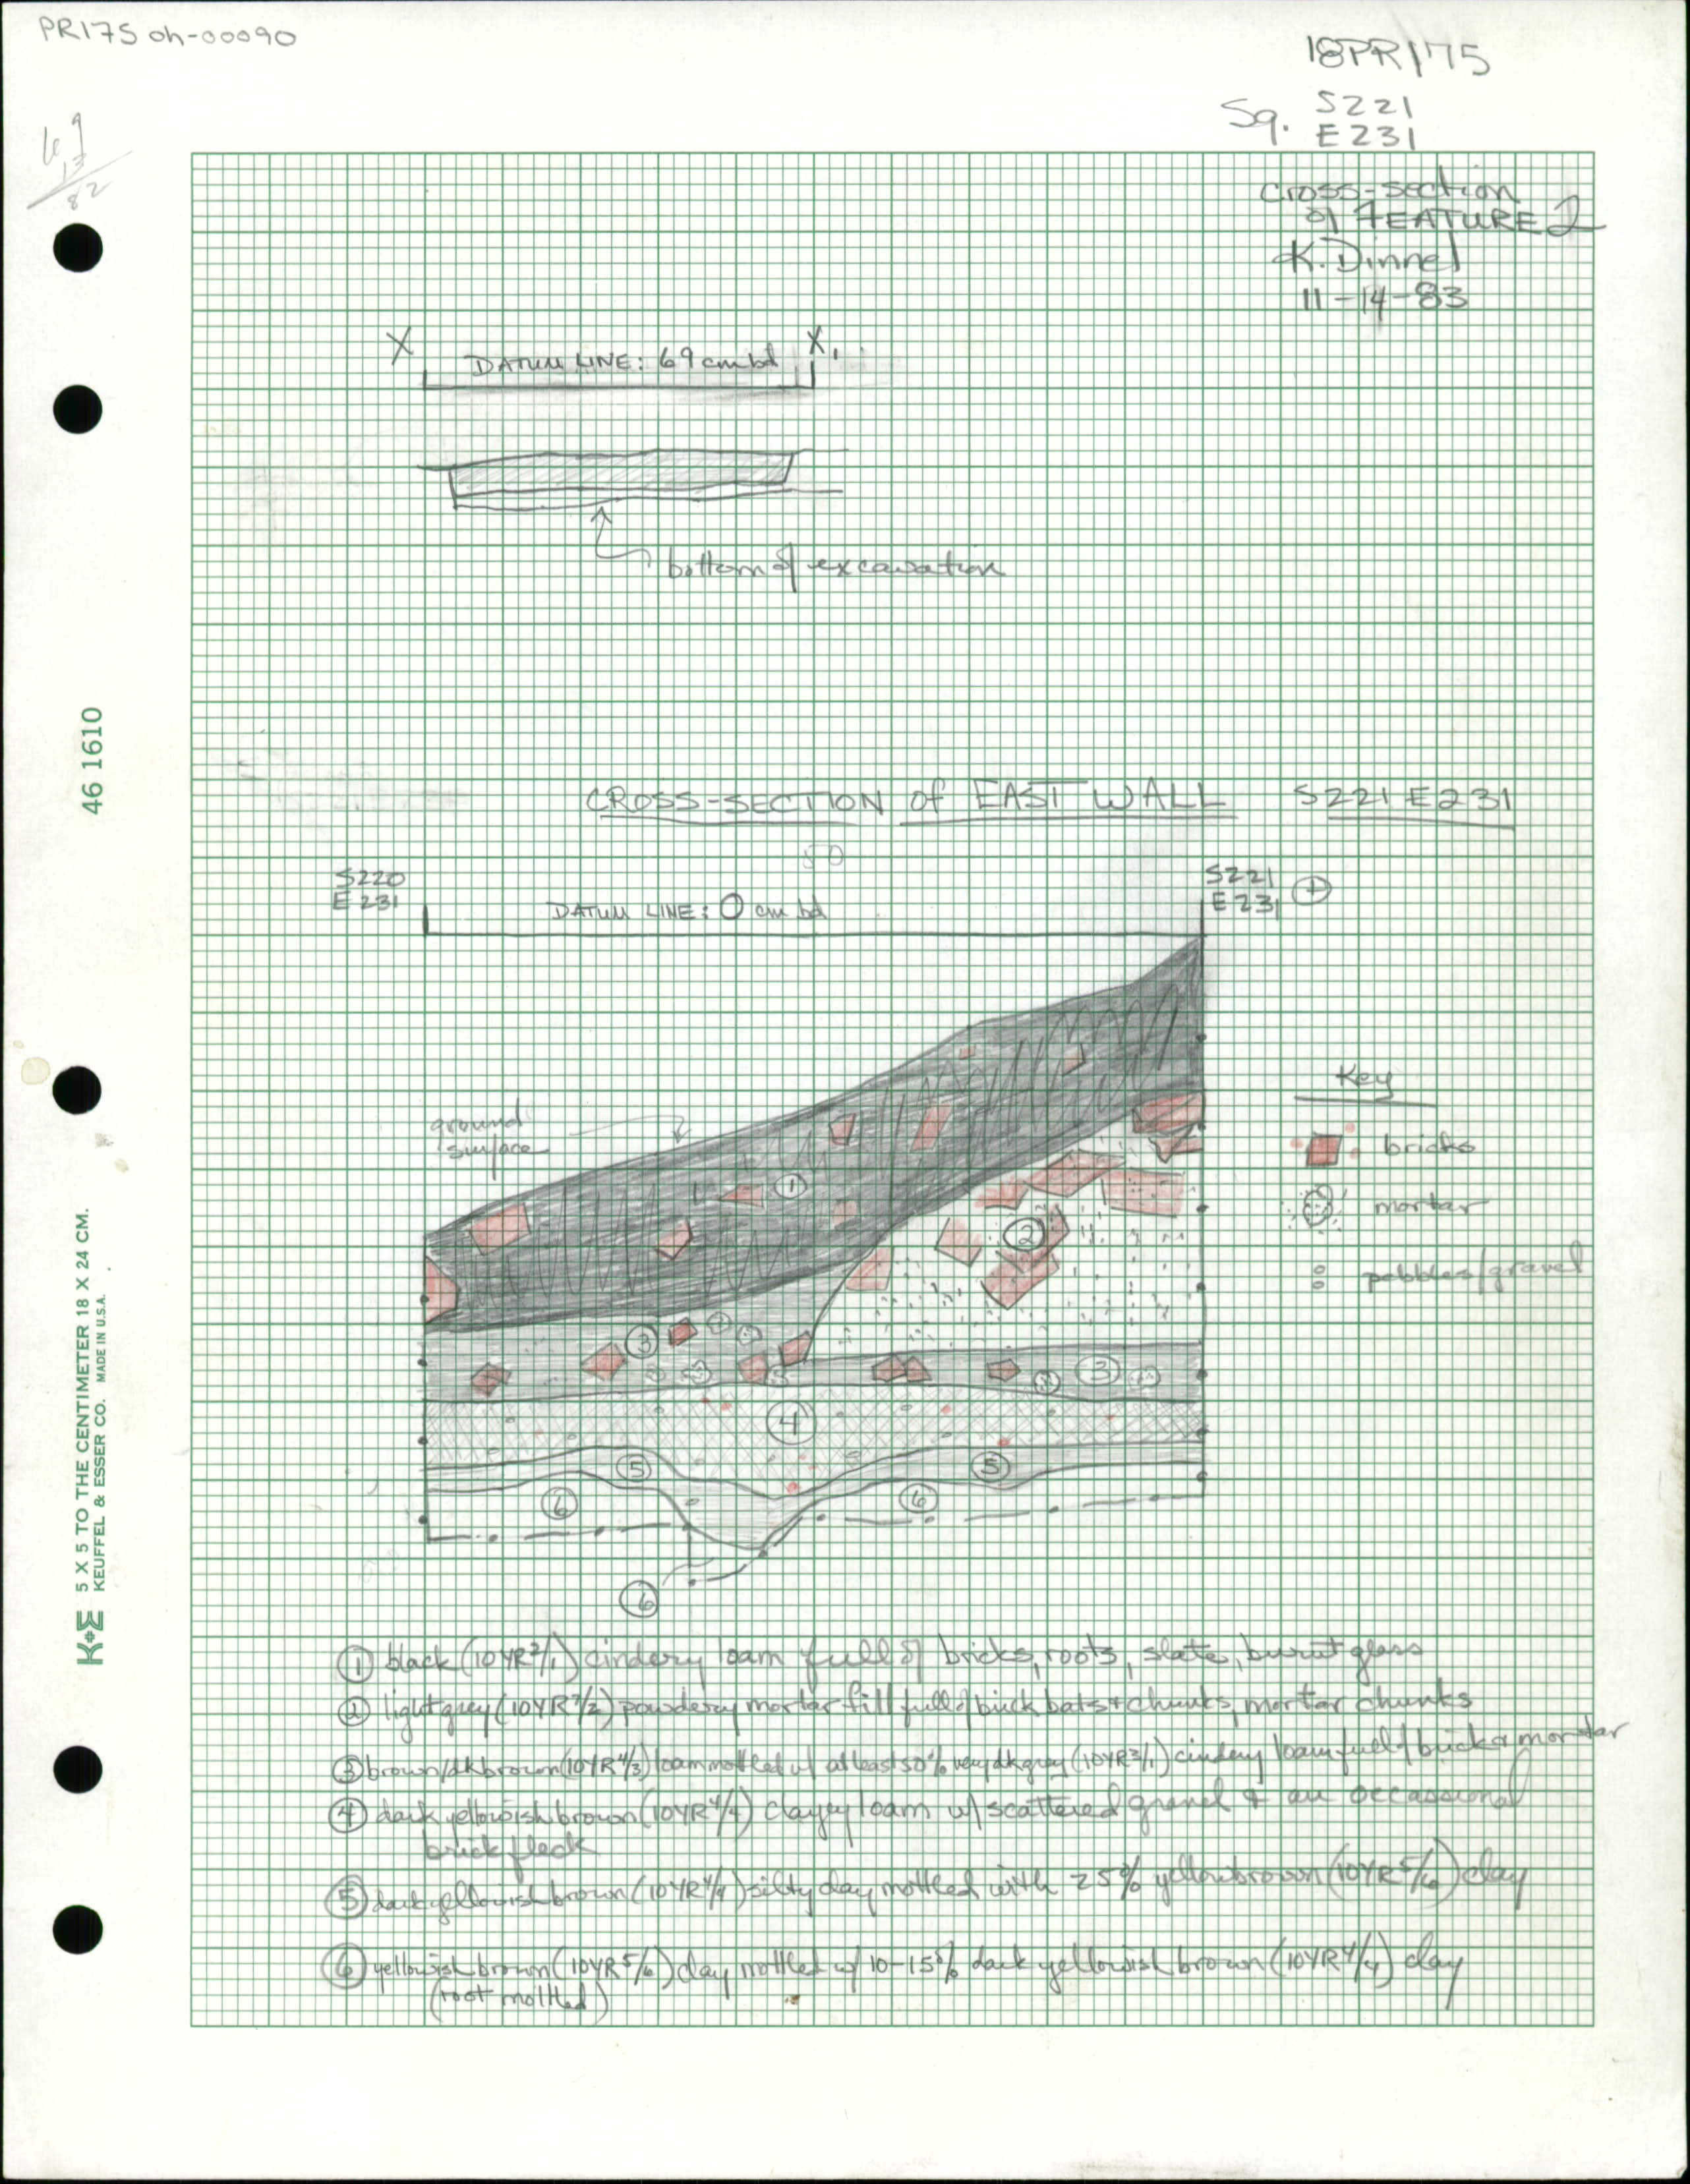 PR175 oh-00090
18PR175
Sq. S221
E231
Cross-section
of FEATURE 2
K. Dinnel
11-14-83
X X1
DATUM LINE: 69 cm bd
bottom of excavation
46 1610
CROSS-SECTION of EAST WALL S221 E231
50
S220
E231
S221
E231
DATUM LINE: 0 cm bd
ground
surface
Key
bricks
mortar
pebbles/gravel
1
2
3
3
4
5
5
6
6
6
K+E 5 X 5 TO THE CENTIMETER 18 X 24 CM.
KEUFFEL & ESSER CO. MADE IN U.S.A.
① black (10YR2/1) cindery loam full of bricks, roots, slate, burnt glass
② light grey (10YR7/2) powdery mortar fill full of brick bats + chunks, mortar chunks
③ brown/dk brown (10YR4/3) loam mottled w/ at least 50% very dk grey (10YR3/1) cindery loam full of brick & mortar
④ dark yellowish brown (10YR4/4) clayey loam w/ scattered gravel & an occassional
brick fleck
⑤ dark yellowish brown (10YR4/4) silty clay mottled with 25% yellow brown (10YR5/6) clay
⑥ yellowish brown (10YR5/6) clay mottled w/ 10-15% dark yellowish brown (10YR4/4) clay
(root mottled)